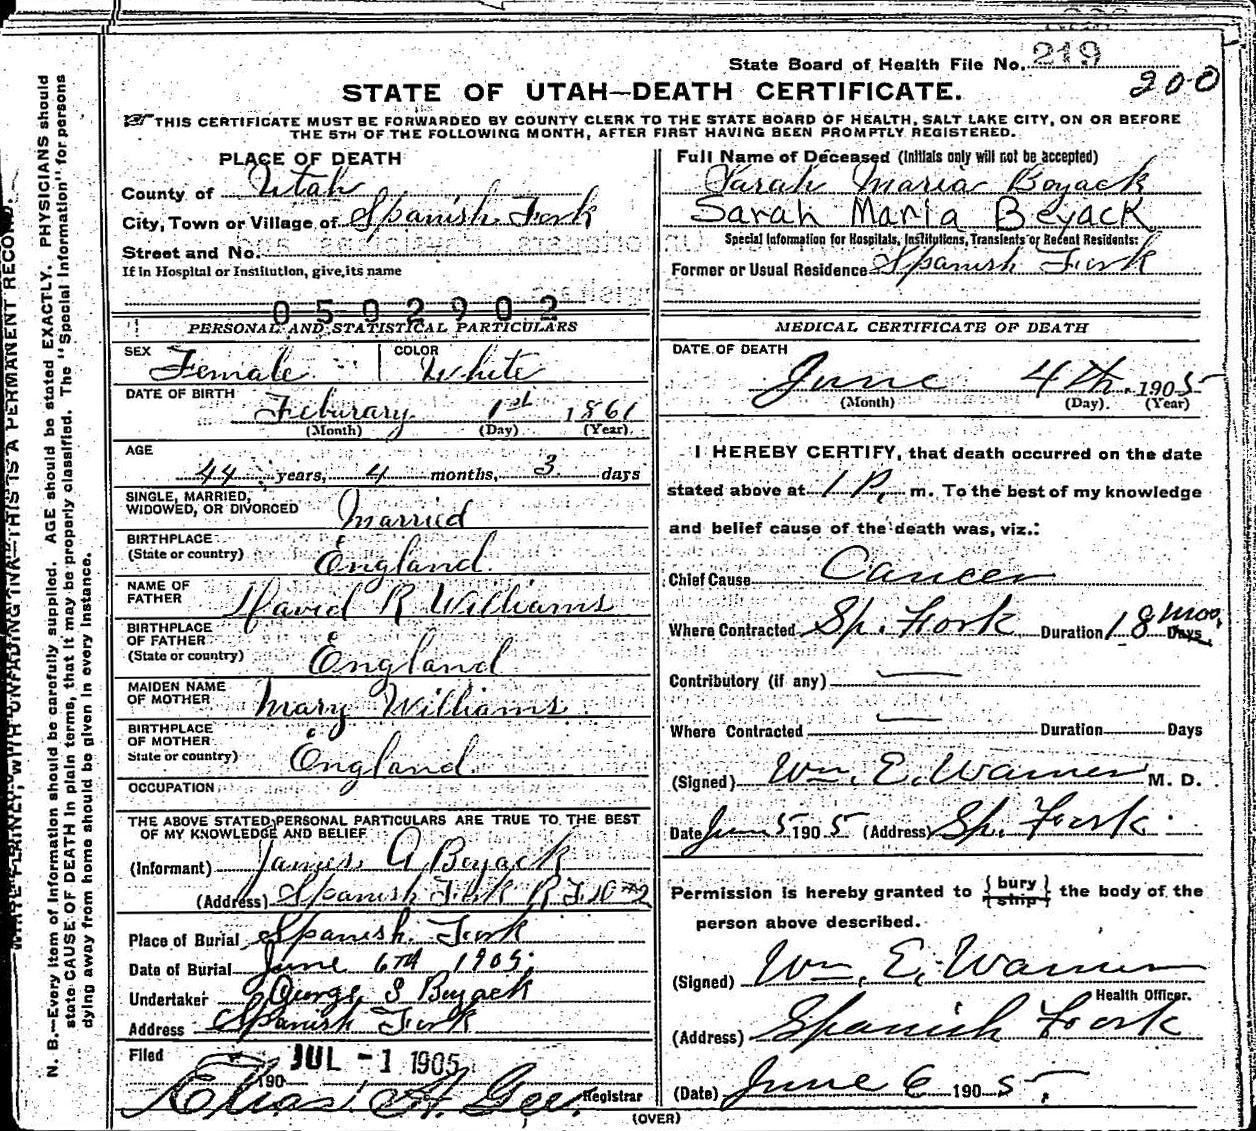 State Board of Health File No. 219
200
STATE OF UTAH—DEATH CERTIFICATE.
THIS CERTIFICATE MUST BE FORWARDED BY COUNTY CLERK TO THE STATE BOARD OF HEALTH, SALT LAKE CITY, ON OR BEFORE
THE 5TH OF THE FOLLOWING MONTH, AFTER FIRST HAVING BEEN PROMPTLY REGISTERED.
PLACE OF DEATH
County of Utah
City, Town or Village of Spanish Fork
Street and No.
If in Hospital or Institution, give its name
0502902
PERSONAL AND STATISTICAL PARTICULARS
SEX Female COLOR White
DATE OF BIRTH
Feburary 1st 1861
(Month) (Day) (Year)
AGE
44 years, 4 months, 3 days
SINGLE, MARRIED,
WIDOWED, OR DIVORCED Married
BIRTHPLACE
(State or country) England
NAME OF
FATHER David R Williams
BIRTHPLACE
OF FATHER
(State or country) England
MAIDEN NAME
OF MOTHER Mary Williams
BIRTHPLACE
OF MOTHER
State or country) England
OCCUPATION
THE ABOVE STATED PERSONAL PARTICULARS ARE TRUE TO THE BEST
OF MY KNOWLEDGE AND BELIEF
(Informant) James A Boyack
(Address) Spanish Fork R.F.D. no 2
Place of Burial Spanish Fork
Date of Burial June 6th 1905
Undertaker George S Boyack
Address Spanish Fork
Filed JUL -1 1905
190
Elias A. Gee. Registrar
Full Name of Deceased (Initials only will not be accepted)
Sarah Maria Boyack
Sarah Maria Beyack
Special Information for Hospitals, Institutions, Transients or Recent Residents:
Former or Usual Residence Spanish Fork
MEDICAL CERTIFICATE OF DEATH
DATE OF DEATH
June 4th. 1905
(Month) (Day). (Year)
I HEREBY CERTIFY, that death occurred on the date
stated above at 1 P. m. To the best of my knowledge
and belief cause of the death was, viz.:
Chief Cause Cancer
Where Contracted Sp. Fork Duration 18 mos. Days
Contributory (if any) —
Where Contracted — Duration Days
(Signed) Wm. E. Warner M. D.
Date June 5 1905 (Address) Sp. Fork.
Permission is hereby granted to { bury ship } the body of the
person above described.
(Signed) Wm. E. Warner
Health Officer.
(Address) Spanish Fork
(Date) June 6 1905.
(OVER)
N. B.—Every item of Information should be carefully supplied. AGE should be stated EXACTLY. PHYSICIANS should
state CAUSE OF DEATH in plain terms, that it may be properly classified. The "Special Information" for persons
dying away from home should be given in every instance.
WRITE PLAINLY, WITH UNFADING INK—THIS IS A PERMANENT RECORD.